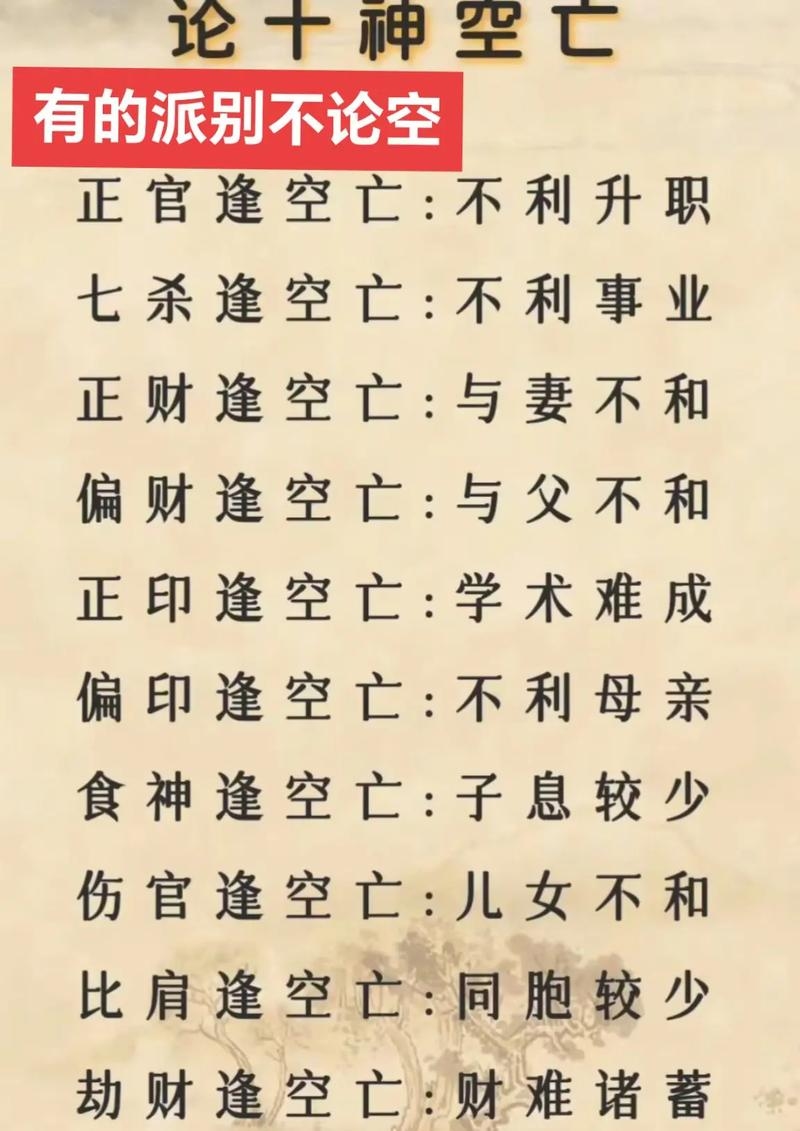 论十神空亡
有的派别不论空
正官逢空亡:不利升职
七杀逢空亡:不利事业
正财逢空亡:与妻不和
偏财逢空亡:与父不和
正印逢空亡:学术难成
偏印逢空亡:不利母亲
食神逢空亡:子息较少
伤官逢空亡:儿女不和
比肩逢空亡:同胞较少
劫财逢空亡:财难诸蓄